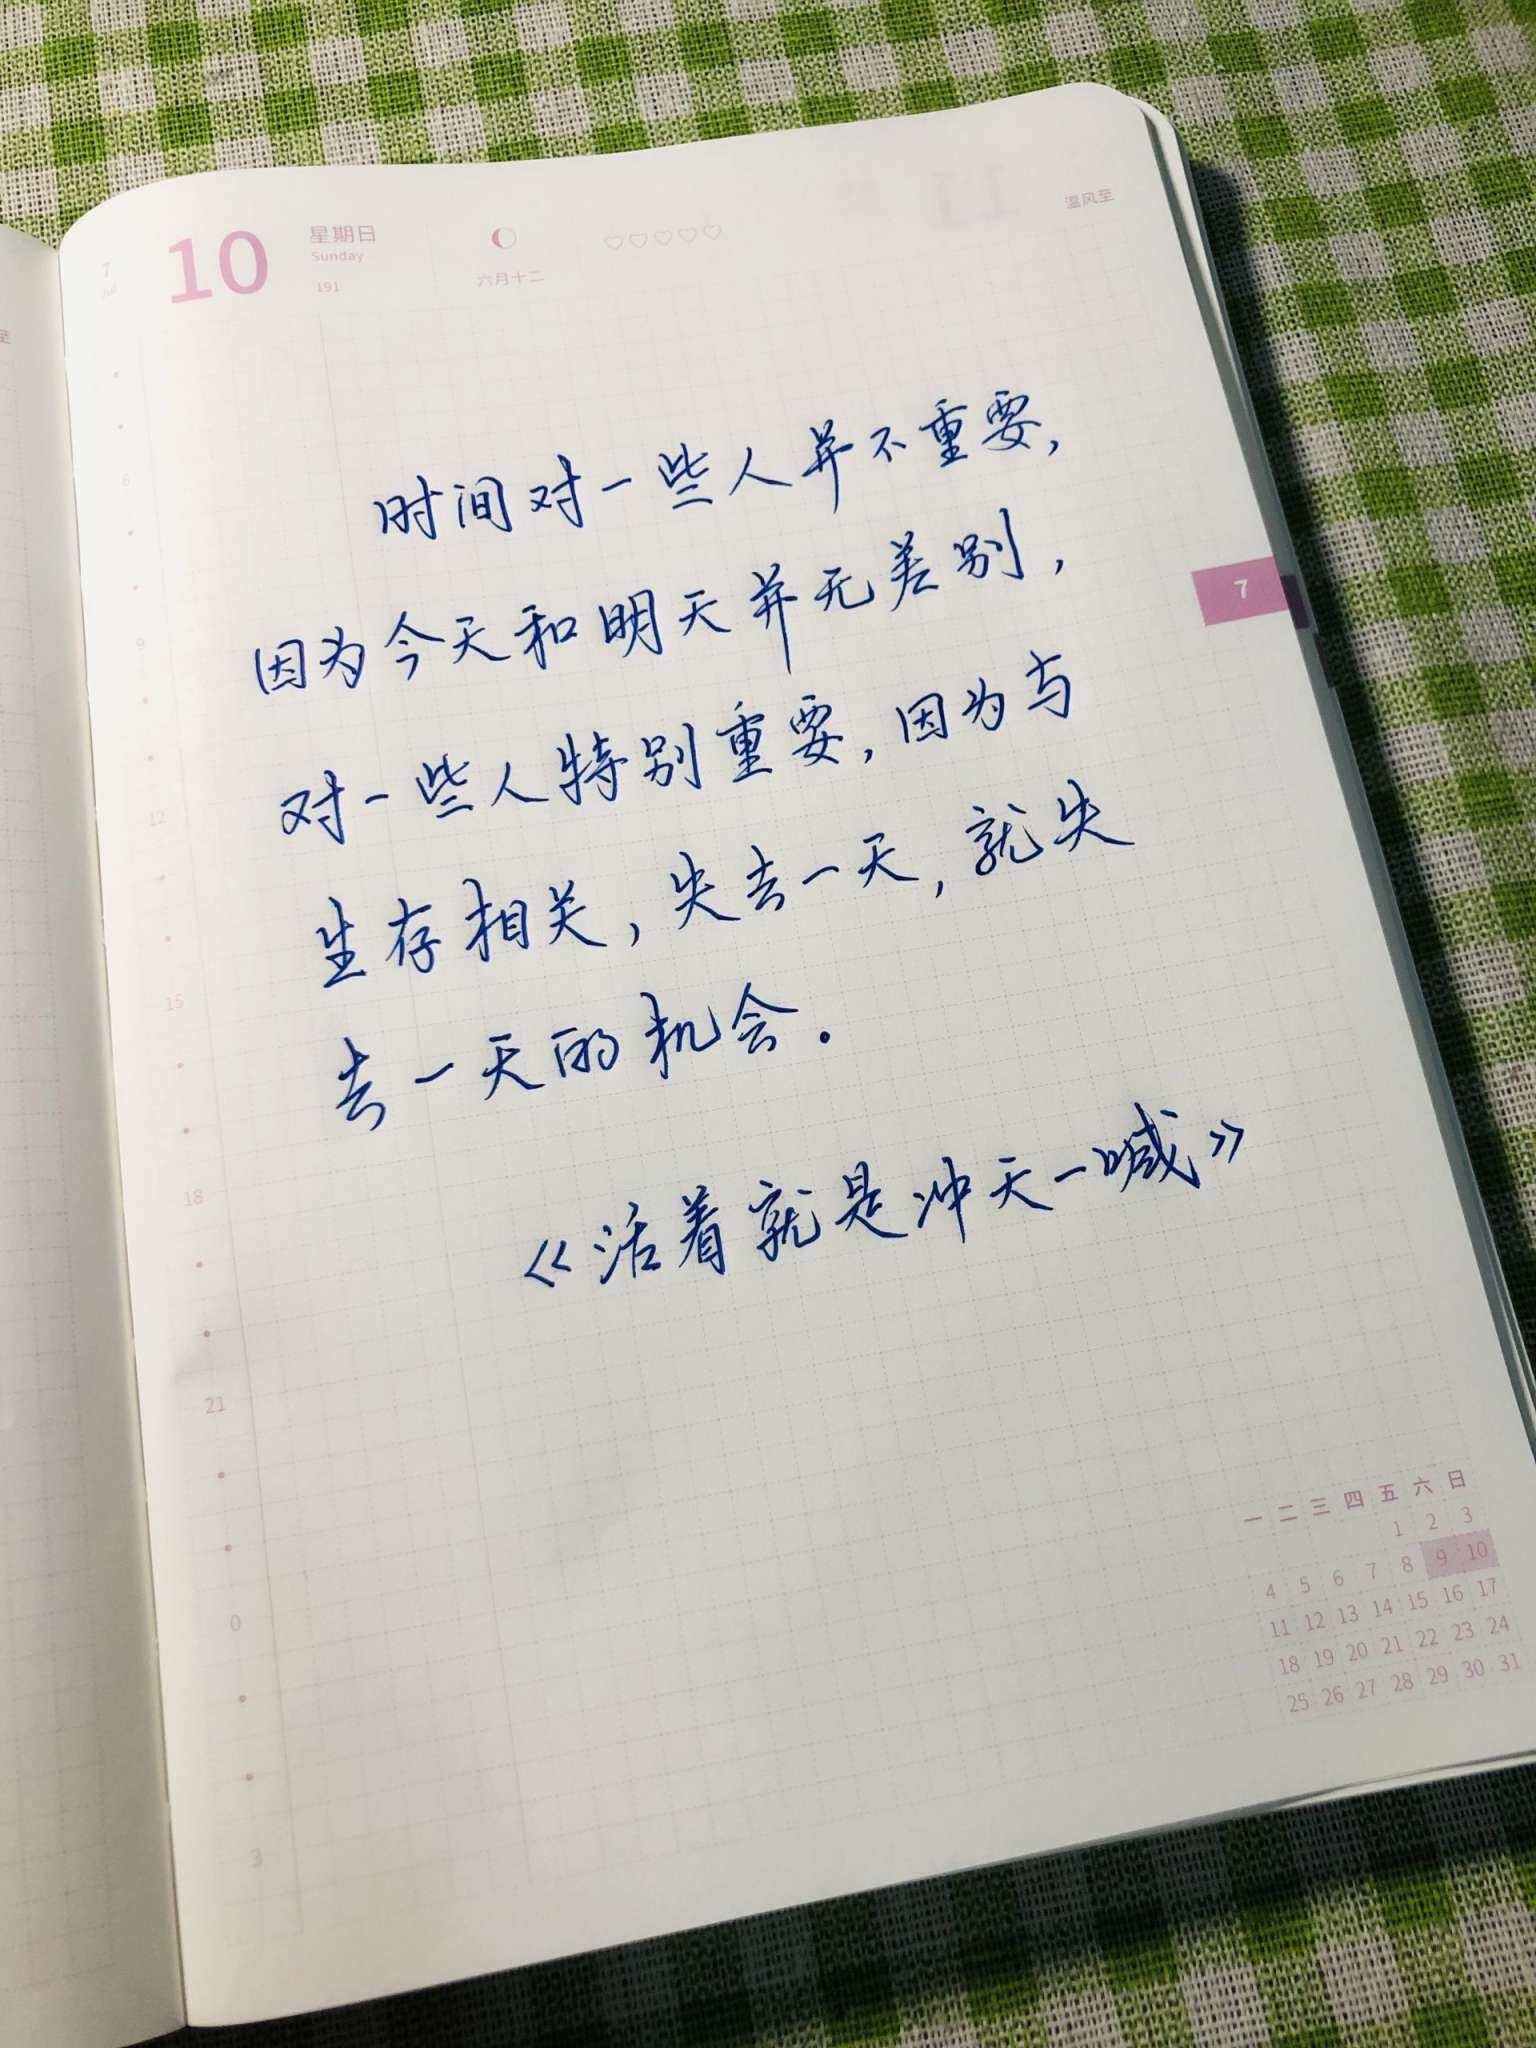 7
Jul
10
星期日
Sunday
191
六月十二
温风至
至
7
6
9
12
15
18
21
0
3
时间对一些人并不重要，
因为今天和明天并无差别，
对一些人特别重要，因为与
生存相关，失去一天，就失
去一天的机会。
《活着就是冲天一喊》
一 二 三 四 五 六 日
1 2 3
4 5 6 7 8 9 10
11 12 13 14 15 16 17
18 19 20 21 22 23 24
25 26 27 28 29 30 31